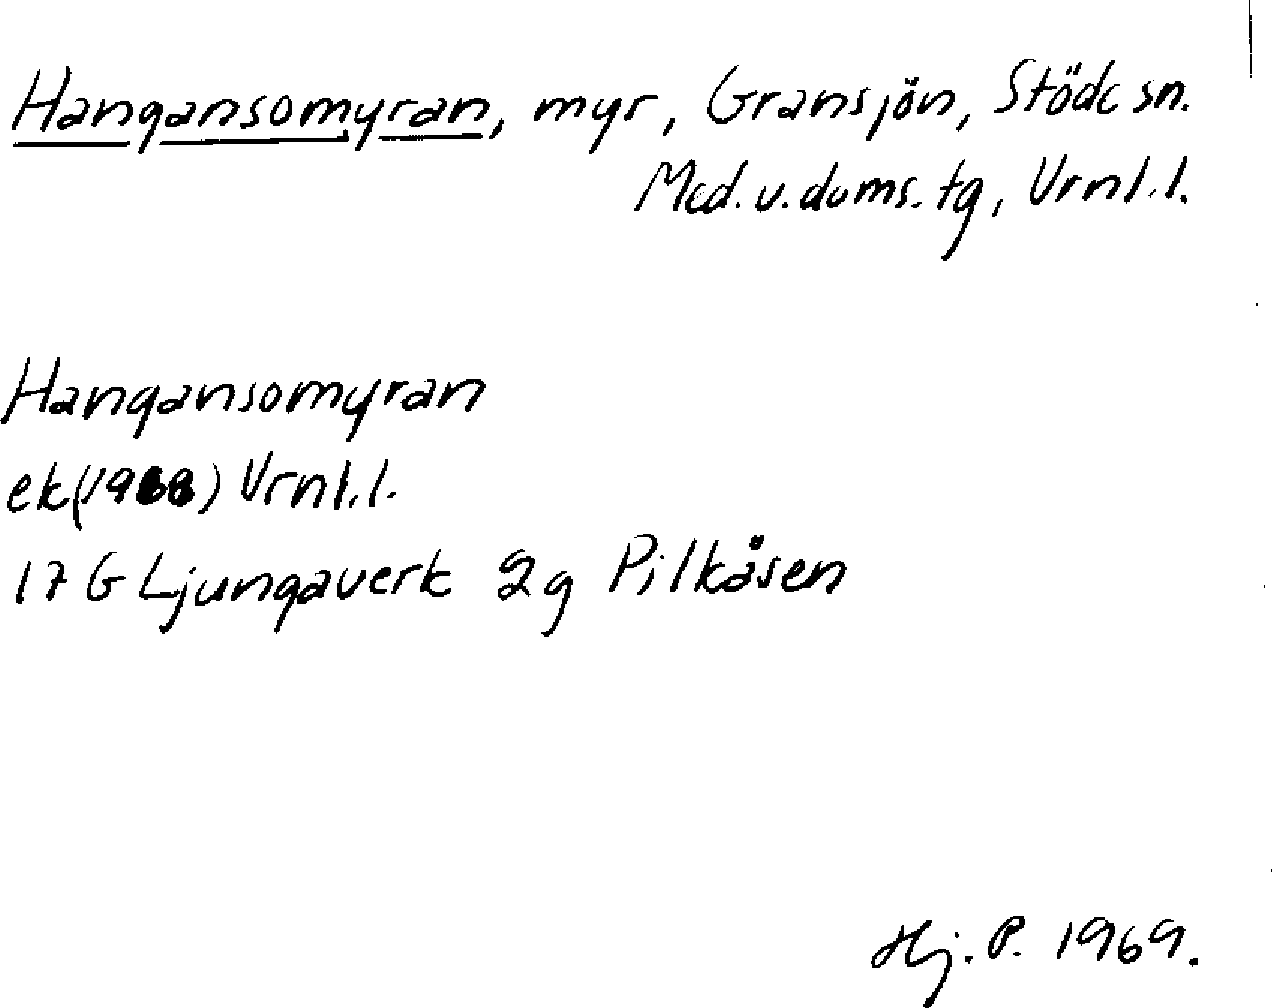 Hangansomyran, myr, Gransjön, Stöde sn.
Med. v. doms. tg, Vrnl.l.
Hangansomyran
ek (1968) Vrnl.l.
17 G Ljungaverk 2g Pilkåsen
Hj. P. 1969.